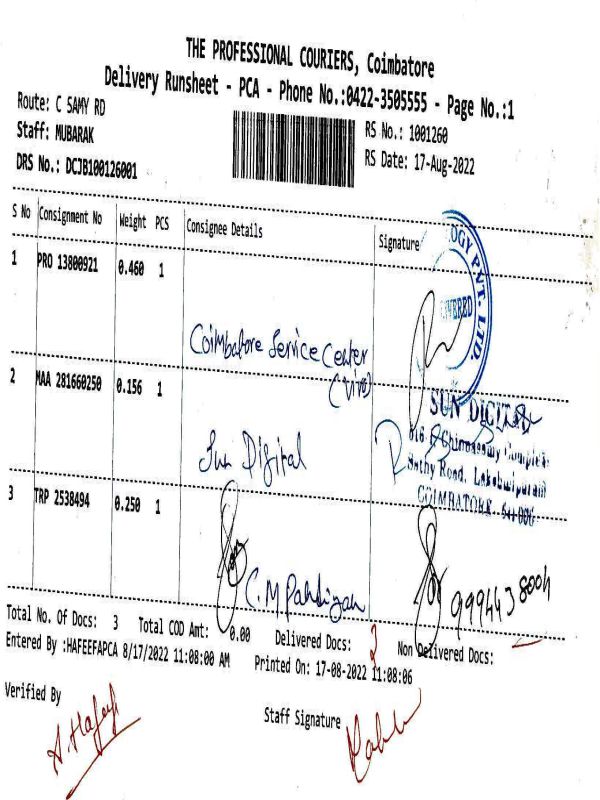 THE PROFESSIONAL COURIERS, Coimbatore
Delivery Runsheet - PCA - Phone No.:0422-3505555 - Page No.:1
Route: C SAMY RD
RS No.: 1001260
Staff: MUBARAK
RS Date: 17-Aug-2022
DRS No.: DCJB100126001
S No Consignment No Weight PCS Consignee Details Signature
OGY PVT. LTD.
1 PRO 13800921 0.460 1
Coimbatore Service Center
(Vivo)
2 MAA 281660250 0.156 1
SUN DIGITAL
Sun Digital
Sathy Road,
COIMBATORE
3 TRP 2538494 0.250 1
C.M Pandiyan
9994438004
Total No. Of Docs: 3 Total COD Amt: 0.00 Delivered Docs: 3 Non Delivered Docs: —
Entered By :HAFEEFAPCA 8/17/2022 11:08:00 AM Printed On: 17-08-2022 11:08:06
Verified By
Staff Signature
A.Hafeef